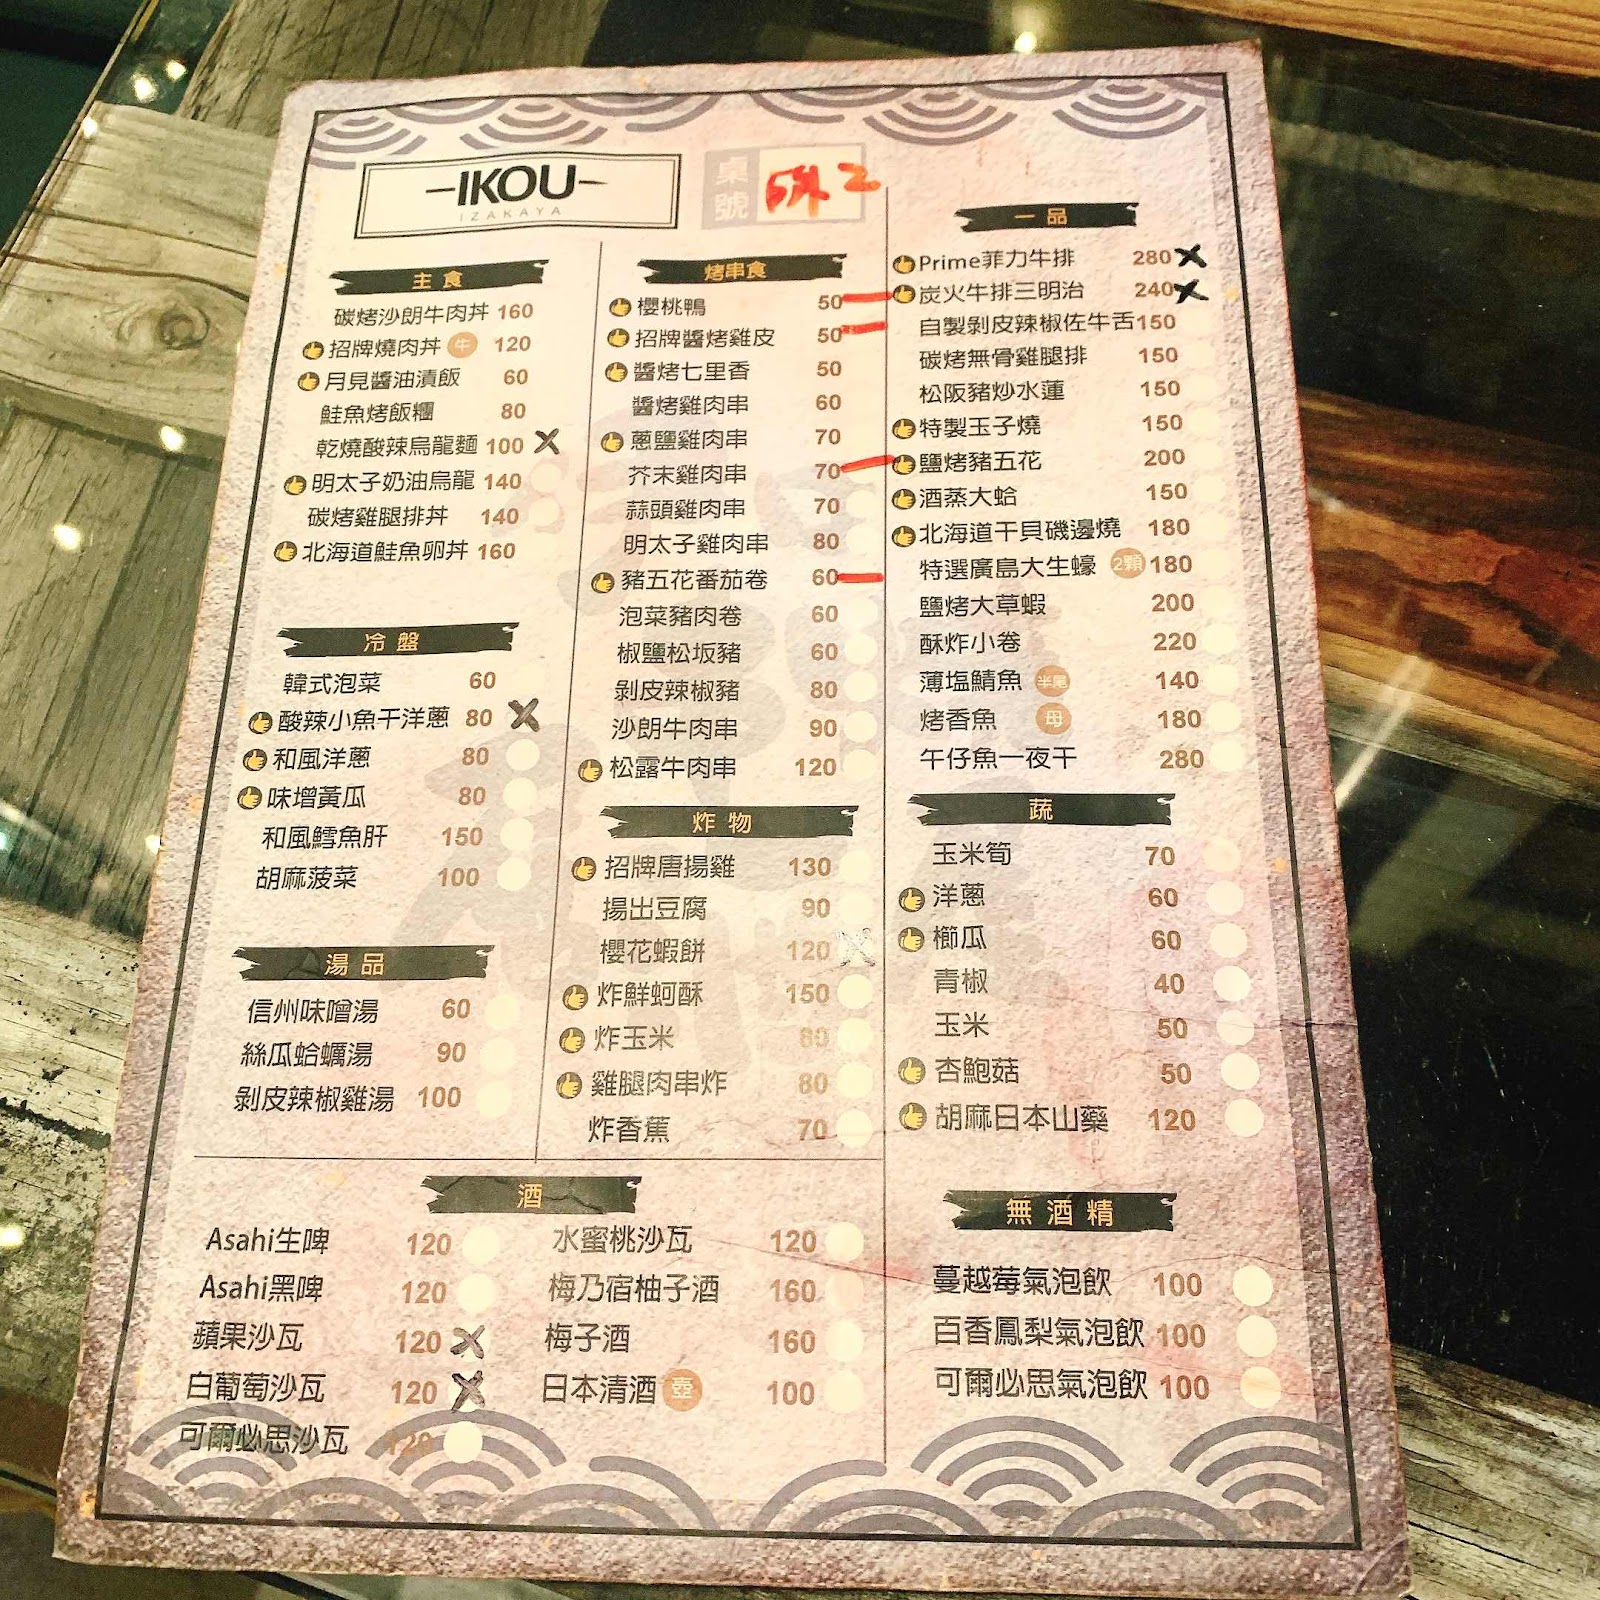 IKOU
IZAKAYA
桌號 2
主食
碳烤沙朗牛肉丼 160
招牌燒肉丼 牛 120
月見醬油漬飯 60
鮭魚烤飯糰 80
乾燒酸辣烏龍麵 100
明太子奶油烏龍 140
碳烤雞腿排丼 140
北海道鮭魚卵丼 160
冷盤
韓式泡菜 60
酸辣小魚干洋蔥 80
和風洋蔥 80
味增黃瓜 80
和風鱈魚肝 150
胡麻菠菜 100
湯品
信州味噌湯 60
絲瓜蛤蠣湯 90
剝皮辣椒雞湯 100
烤串食
櫻桃鴨 50
招牌醬烤雞皮 50
醬烤七里香 50
醬烤雞肉串 60
蔥鹽雞肉串 70
芥末雞肉串 70
蒜頭雞肉串 70
明太子雞肉串 80
豬五花番茄卷 60
泡菜豬肉卷 60
椒鹽松坂豬 60
剝皮辣椒豬 80
沙朗牛肉串 90
松露牛肉串 120
炸物
招牌唐揚雞 130
揚出豆腐 90
櫻花蝦餅 120
炸鮮蚵酥 150
炸玉米 80
雞腿肉串炸 80
炸香蕉 70
一品
Prime菲力牛排 280
炭火牛排三明治 240
自製剝皮辣椒佐牛舌 150
碳烤無骨雞腿排 150
松阪豬炒水蓮 150
特製玉子燒 150
鹽烤豬五花 200
酒蒸大蛤 150
北海道干貝磯邊燒 180
特選廣島大生蠔 2顆 180
鹽烤大草蝦 200
酥炸小卷 220
薄塩鯖魚 半尾 140
烤香魚 母 180
午仔魚一夜干 280
蔬
玉米筍 70
洋蔥 60
櫛瓜 60
青椒 40
玉米 50
杏鮑菇 50
胡麻日本山藥 120
酒
Asahi生啤 120
Asahi黑啤 120
蘋果沙瓦 120
白葡萄沙瓦 120
可爾必思沙瓦 120
水蜜桃沙瓦 120
梅乃宿柚子酒 160
梅子酒 160
日本清酒 壺 100
無酒精
蔓越莓氣泡飲 100
百香鳳梨氣泡飲 100
可爾必思氣泡飲 100